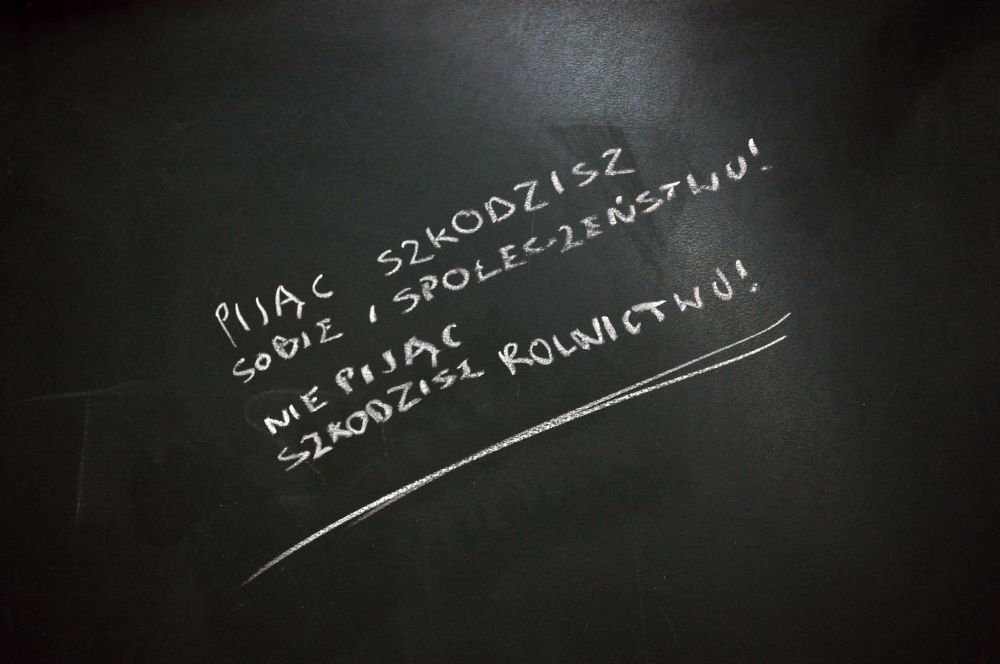 PIJĄC SZKODZISZ
SOBIE I SPOŁECZEŃSTWU!
NIE PIJĄC
SZKODZISZ ROLNICTWU!